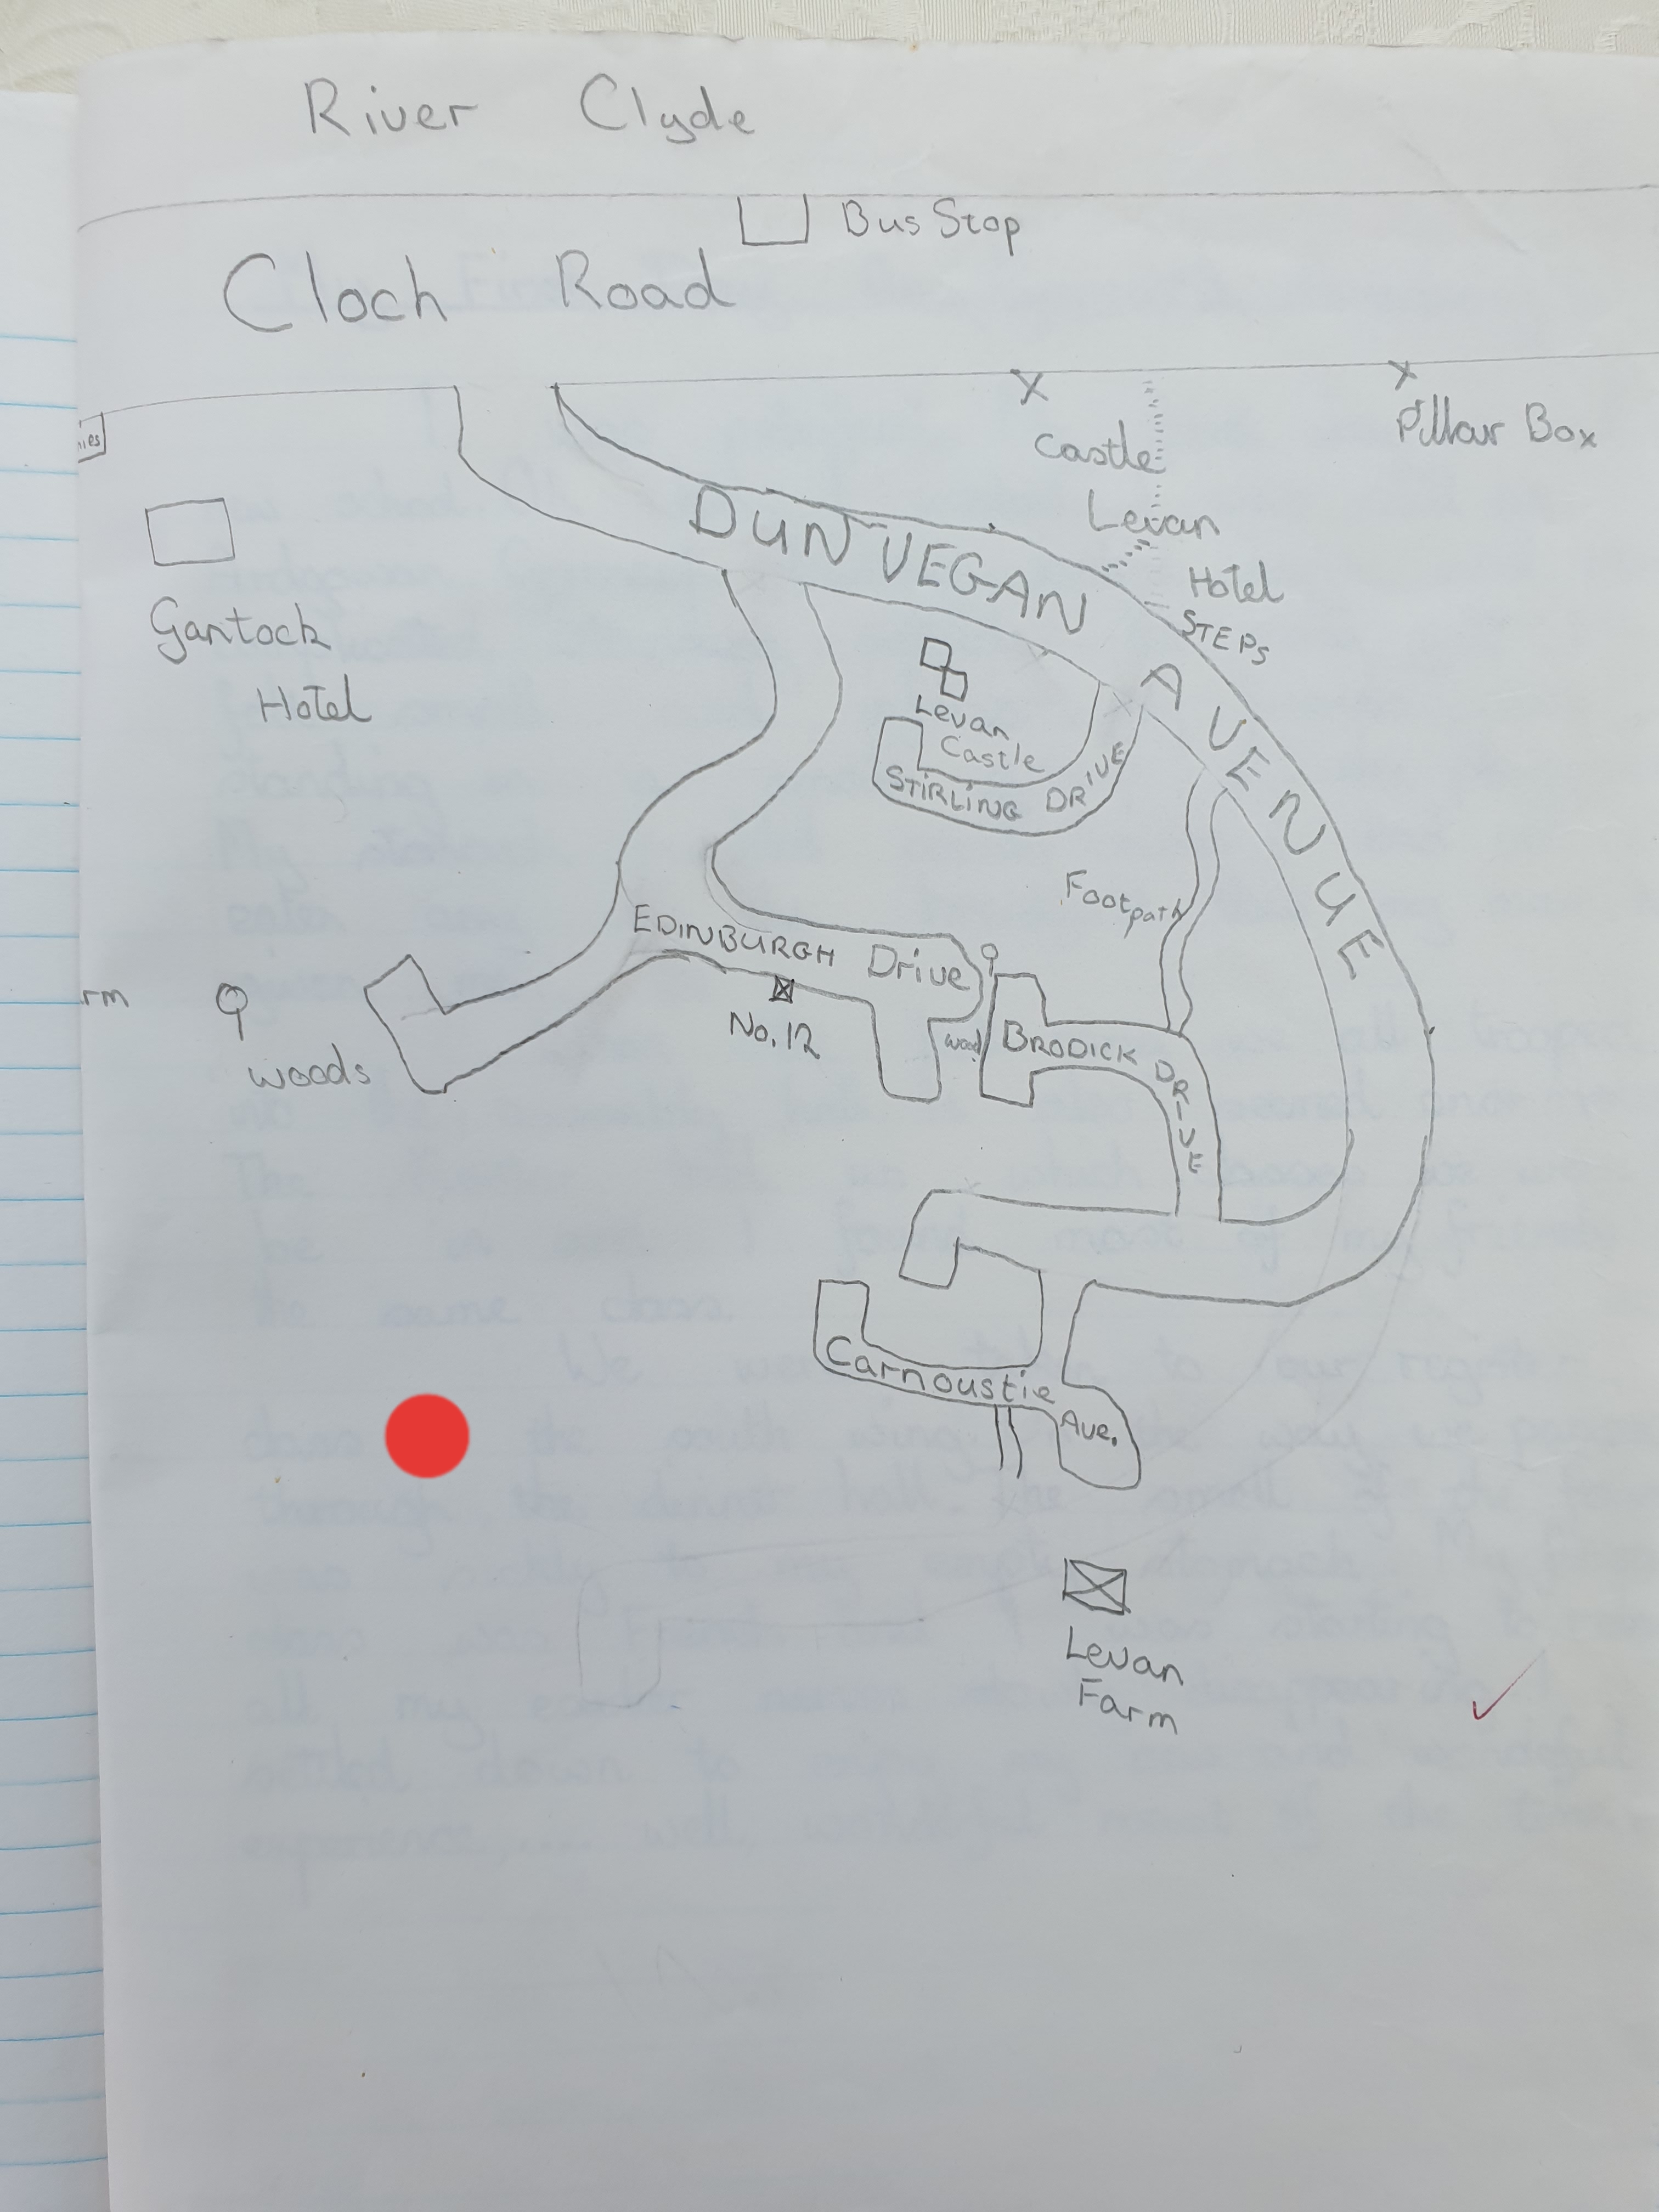 River Clyde
Bus Stop
Cloch Road
Castle
Levan
Hotel
STEPS
Pillar Box
DUNVEGAN AVENUE
Gantock
Hotel
Levan
Castle
STIRLING DRIVE
Footpath
EDINBURGH Drive
No. 12
wood
BRODICK DRIVE
rm
woods
Carnoustie Ave.
Levan
Farm